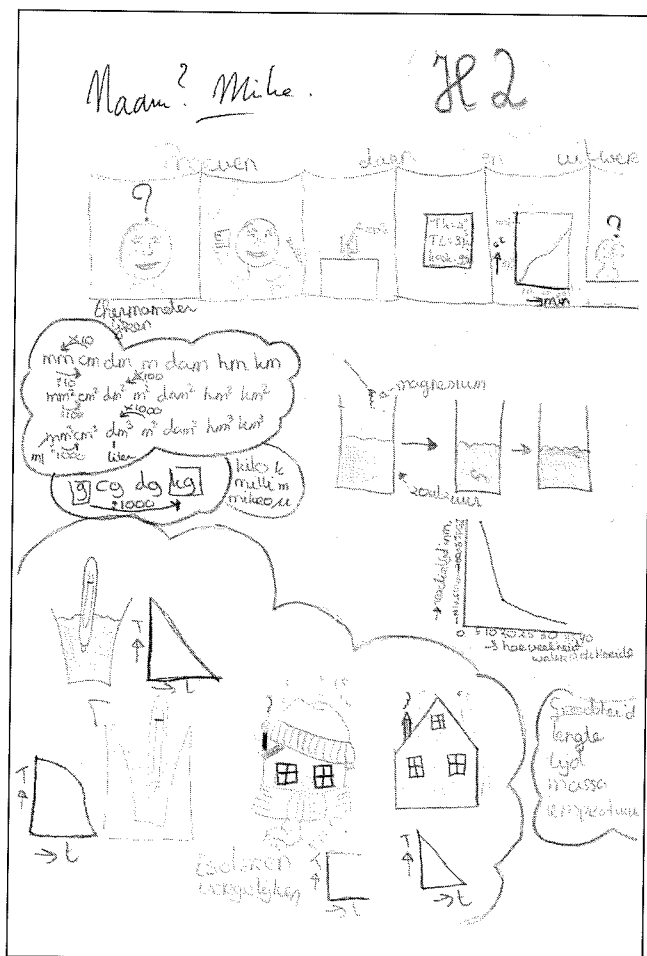 Naam? Mike.
H2
Proeven doen en uitwer
?
?
°C
min
thermometer
ijken
x10
mm cm dm m dam hm km
:10
x100
mm² cm² dm² m² dam² hm² km²
:100
x1000
mm³ cm³ dm³ m³ dam³ hm³ km³
ml :1000 liter
g cg dg kg
:1000
kilo k
milli m
mikro µ
magnesium
zoutzuur
hoeveelheid
T
t
T
t
isoleren
vergelijken
T
t
T
t
Grootheid
lengte
tijd
massa
temperatuur